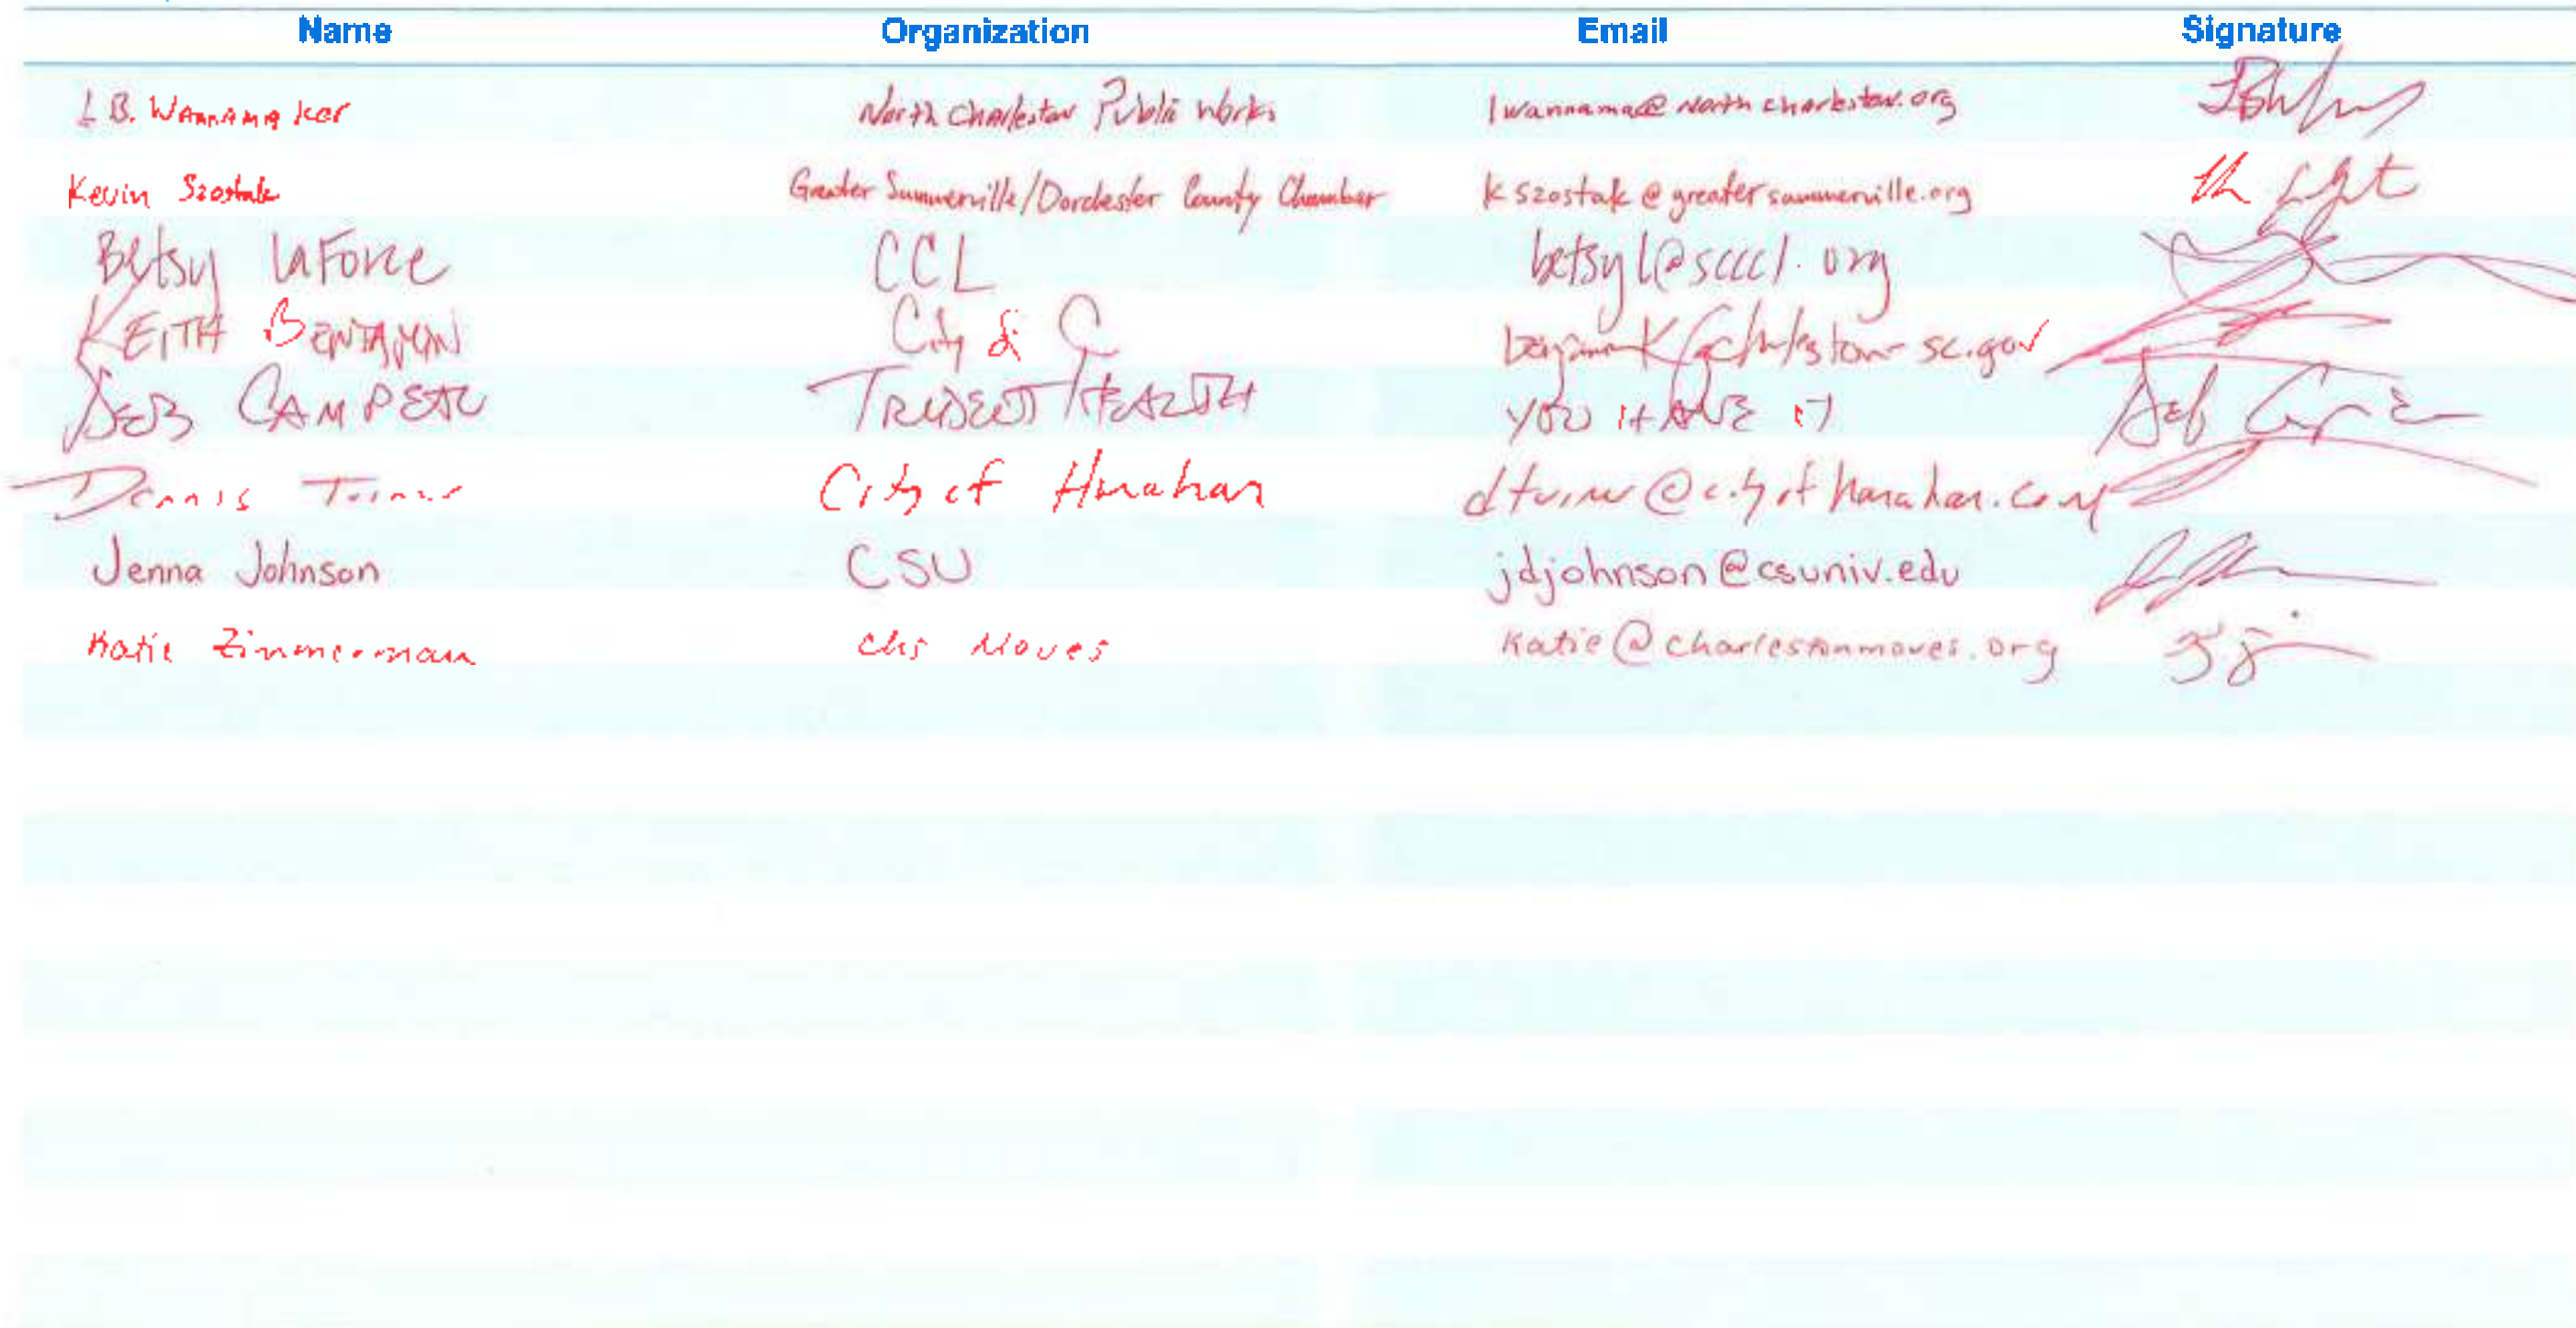 Name Organization Email Signature
L B. Wannamaker North Charleston Public Works lwannama@northcharleston.org
Kevin Szostak Greater Summerville/Dorchester County Chamber kszostak@greatersummerville.org
Betsy LaForce CCL betsyl@scccl.org
KEITH BENJAMIN City of C benjamink@charleston-sc.gov
DEB CAMPEAU TRIDENT HEALTH YOU HAVE IT Deb
Dennis Turner City of Hanahan dturner@cityofhanahan.com
Jenna Johnson CSU jdjohnson@csuniv.edu
Katie Zimmerman Chs Moves katie@charlestonmoves.org